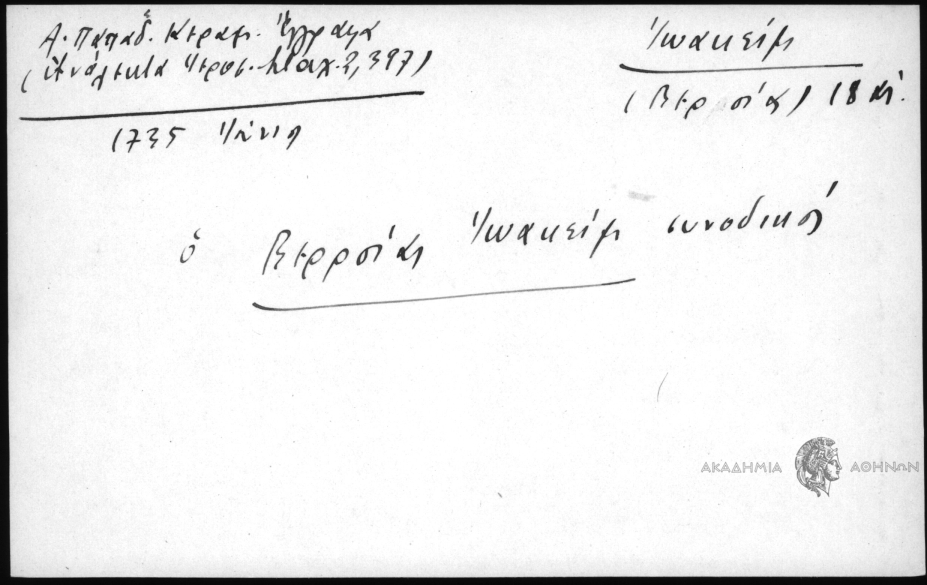 Α. Παπαδ. Κεραμ. Ἔγγραφα
(Ἀνάλεκτα Ἱερος. Σταχ. 2, 397)
1735 Ἰούνιο
Ἰωακείμ
(Βερροίας) 18 αἰ.
ὁ Βερροίας Ἰωακείμ συνοδικός
ΑΚΑΔΗΜΙΑ ΑΘΗΝΩΝ